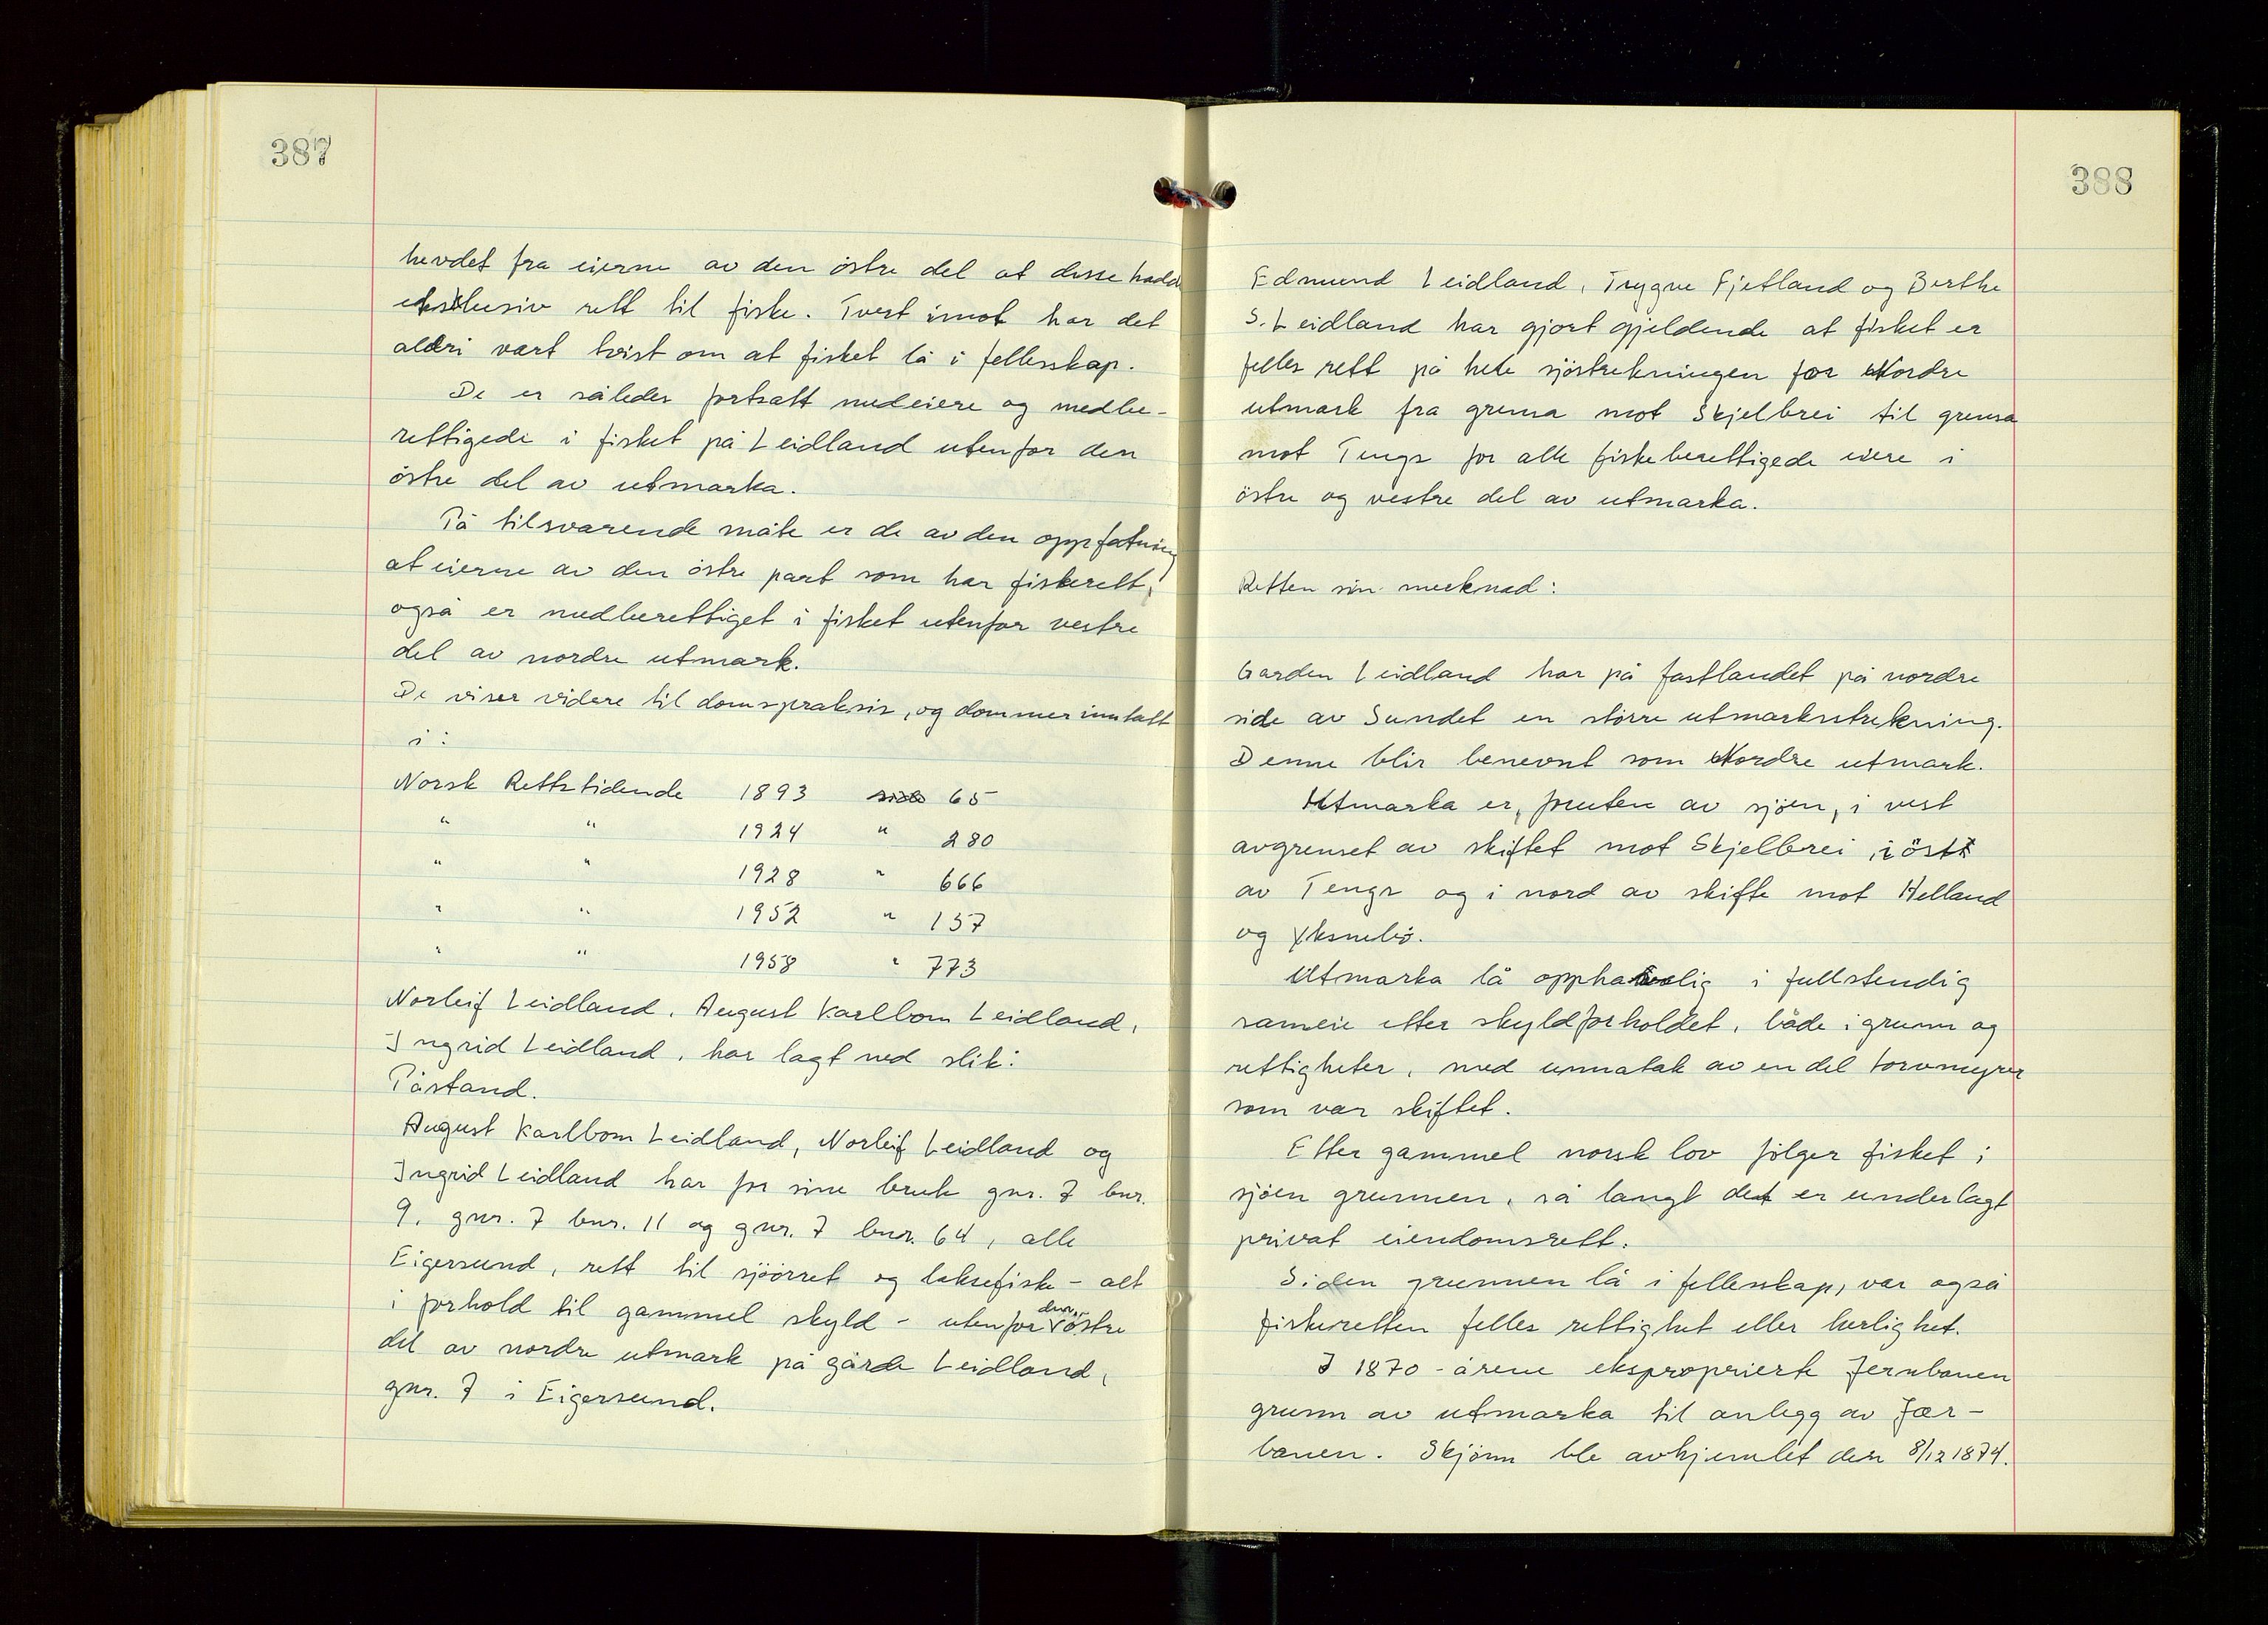 387
hevdet fra eierne av den östre del at disse hadde
eksklusiv rett til fiske. Tvert imot har det
aldri vært tvist om at fisket lå i fellesskap.
De er således fortsatt medeiere og medbe-
rettigede i fisket på Leidland utenfor den
östre del av utmarka.
På tilsvarende måte er de av den oppfatning
at eierne av den östre part som har fiskerett,
også er medberettiget i fisket utenfor vestre
del av nordre utmark.
De viser videre til domspraksis, og dommer inntatt
i:
Norsk Rettstidende 1893 side 65
" " 1924 " 280
" " 1928 " 666
" " 1952 " 137
" " 1958 " 773
Norleif Leidland, August Karlbom Leidland,
Ingrid Leidland, har lagt ned slik:
Påstand.
August Karlbom Leidland, Norleif Leidland og
Ingrid Leidland har for sine bruk gnr. 7 bnr.
9, gnr. 7 bnr. 11 og gnr. 7 bnr. 64, alle
Eigersund, rett til sjöörret og laksefiske - alt
i forhold til gammel skyld - utenfor den östre
del av nordre utmark på gårde Leidland,
gnr. 7 i Eigersund.
388
Edmund Leidland, Trygve Fjetland og Berthe
S. Leidland har gjort gjeldende at fisket er
felles rett på hele sjöstrekningen for Nordre
utmark fra grensa mot Skjelbrei til grensa
mot Tengs for alle fiskeberettigede eiere i
östre og vestre del av utmarka.
Retten sin merknad:
Garden Leidland har på fastlandet på nordre
side av Sundet en större utmarkstrekning.
Denne blir benevnt som Nordre utmark.
Utmarka er, foruten av sjöen, i vest
avgrenset av skiftet mot Skjelbrei, i öst
av Tengs og i nord av skifte mot Helland
og Yksnebö.
Utmarka lå opphavelig i fullstendig
sameie etter skyldforholdet, både i grunn og
rettigheter, med unnatak av en del torvmyrer
som var skiftet.
Etter gammel norsk lov fölger fisket i
sjöen grunnen, så langt det er underlagt
privat eiendomsrett.
Siden grunnen lå i fellesskap, var også
fiskeretten felles rettighet eller herlighet.
I 1870-årene eksproprierte Jernbanen
grunn av utmarka til anlegg av Jær-
banen. Skjönn ble avhjemlet den 8/12 1874.